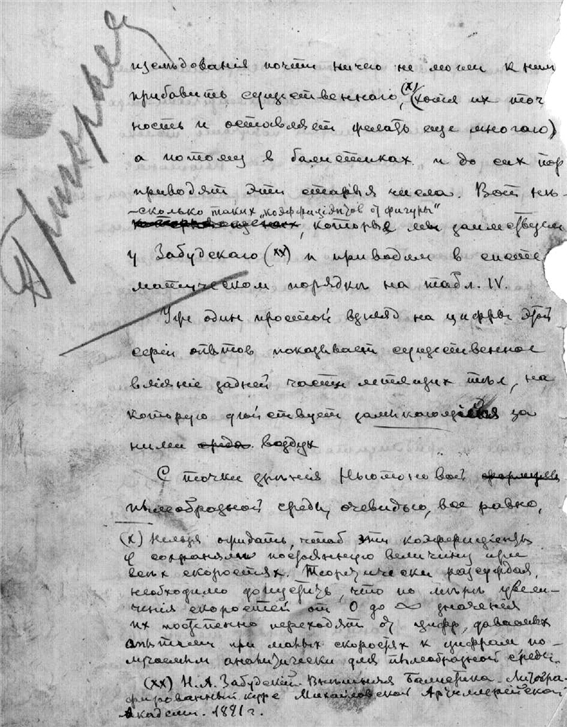 изслѣдованія почти ничего не могли къ ним
прибавить существеннаго, (х) (хотя их точ
ность и оставляет желать еще многаго)
а потому в балистиках и до сих пор
приводят эти старыя числа. Вот нѣ-
-сколько таких „коэффиціентов ϕ фигуры"
которые мы заимствуем
у Забудскаго (хх) и приводим в систе
матическом порядкѣ на табл. IV.
Уже один простой взгляд на цифры этой
серіи опытов показывает существенное
вліяніе задней части летящих тѣл, на
которую дѣйствует замыкающійся за
ними воздух
С точки зрѣнія Ньютоновой
пылеобразной среды, очевидно, все равно,
(х) Нельзя ожидать, чтоб эти коэффиціенты
ϕ сохраняли постоянную величину при
всѣх скоростях. Теоретически разсуждая,
необходимо допустить, что по мѣрѣ увели-
ченія скоростей от 0 до ∞ значенія
их постепенно переходят от цифр, даваемых
опытами при малых скоростях к цифрам по-
лучаемым аналитически для пылеобразной среды.
(хх) Н. А. Забудский. Внѣшняя Балистика. Литогра-
фированный курс Михайловской Артиллерійской
Академіи. 1891 г.